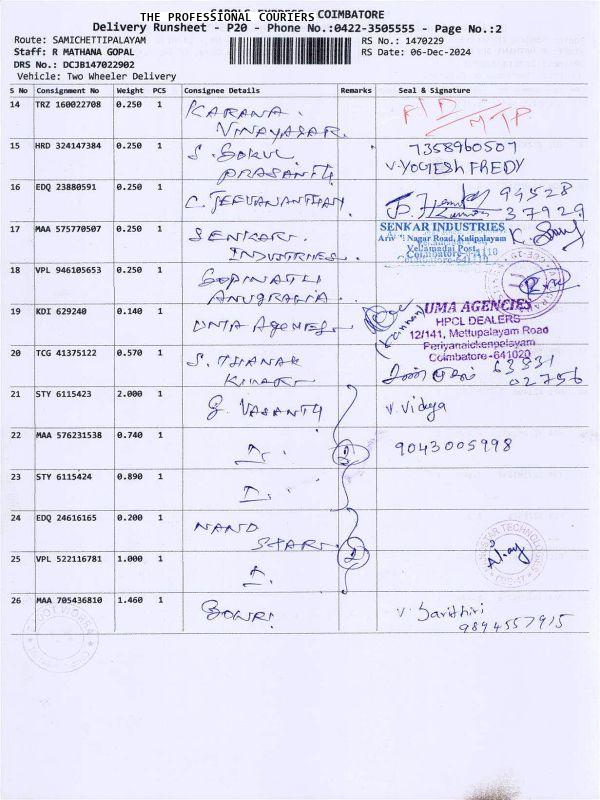 THE PROFESSIONAL COURIERS
COIMBATORE
Delivery Runsheet - P20 - Phone No.:0422-3505555 - Page No.:2
Route: SAMICHETTIPALAYAM
RS No.: 1470229
Staff: R MATHANA GOPAL
RS Date: 06-Dec-2024
DRS No.: DCJB147022902
Vehicle: Two Wheeler Delivery
S No Consignment No Weight PCS Consignee Details Remarks Seal & Signature
14 TRZ 160022708 0.250 1 KARANA.
VINAYAGAR.
15 HRD 324147384 0.250 1 S. GOKUL 7358960507
PRASANTH V.YOGESH FREDY
16 EDQ 23880591 0.250 1 C. JEEVANANTHAM 94528
37929
17 MAA 575770507 0.250 1 SENKAR. SENKAR INDUSTRIES
INDUSTRIES. Nagar Road, Kalipalayam
Vellamadai Post,
18 VPL 946105653 0.250 1 GOPINATH
ANUGRAHA.
19 KDI 629240 0.140 1 UMA Agencies UMA AGENCIES
HPCL DEALERS
12/141, Mettupalayam Road
Periyanaickenpalayam
Coimbatore-641020
20 TCG 41375122 0.570 1 S. THANAR 63831
KUMAR 02756
21 STY 6115423 2.000 1 G. VASANTH V. Vidya
22 MAA 576231538 0.740 1 9043005998
23 STY 6115424 0.890 1
24 EDQ 24616165 0.200 1 NAND
STAR.
25 VPL 522116781 1.000 1
26 MAA 705436810 1.460 1 GOWRI V. Sarithiri
9894557915